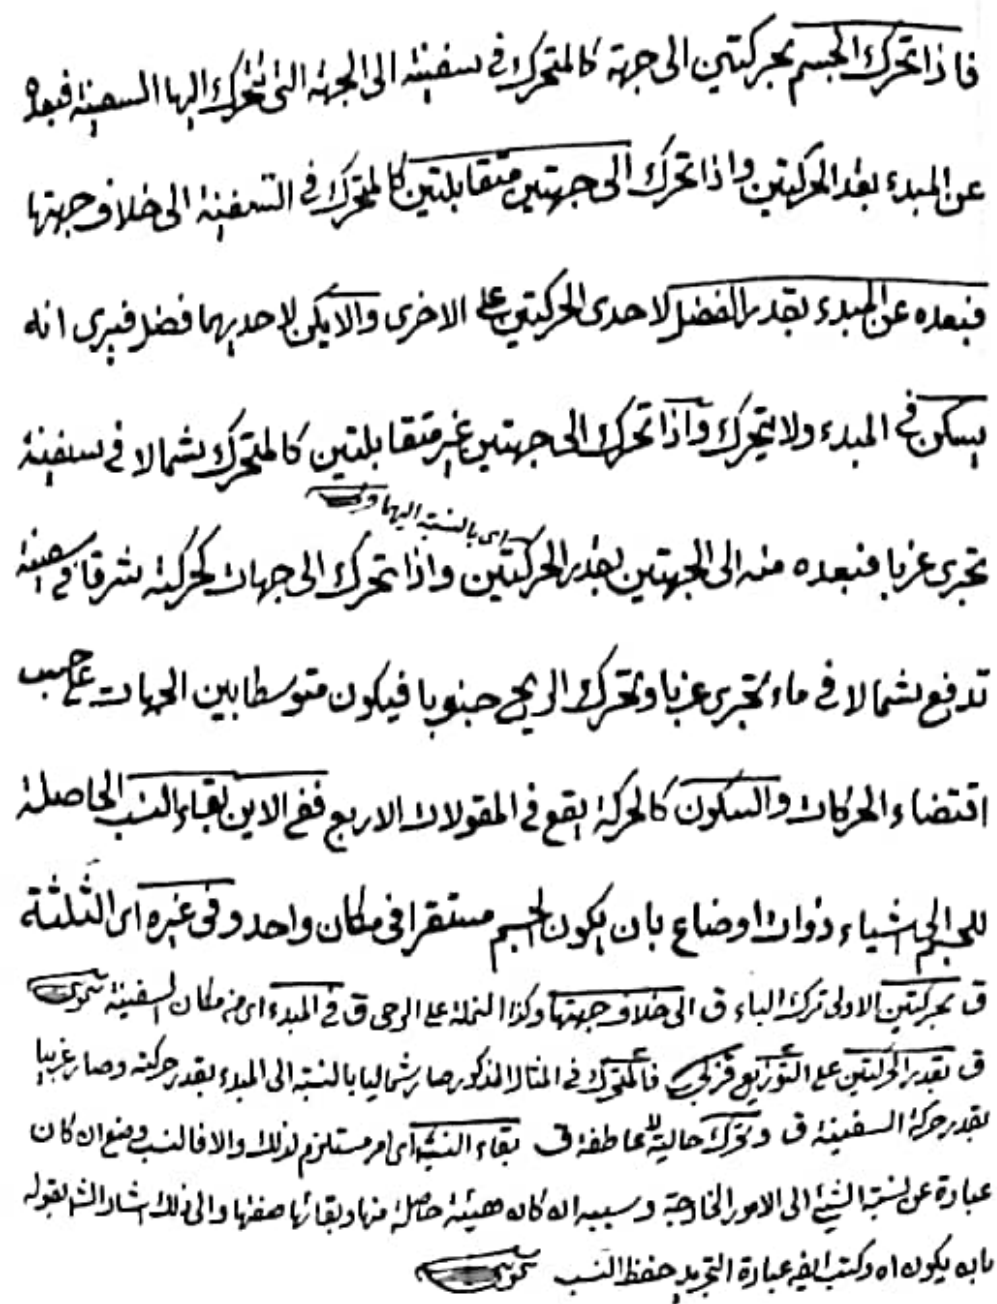 فاذا تحرك الجسم بحركتين الى جهة كالمتحرك في سفينة الى الجهة التى تتحرك اليها السفينة فبعده
عن المبدء بقدر الحركتين واذا تحرك الى جهتين متقابلتين كالمتحرك في السفينة الى خلاف جهتها
فبعده عن المبدء بقدر الفضل لاحدى الحركتين على الاخرى والا يكن لاحديهما فضل فيرى انه
يسكن في المبدء ولا يتحرك واذا تحرك الى جهتين غير متقابلتين كالمتحرك شمالا في سفينة
اى بالنسبة اليهما
تجرى غربا فبعده منه الى الجهتين بقدر الحركتين واذا تحرك الى جهات كحركته شرقا في سفينة
تدفع شمالا في ماء تجرى غربا وتحرك الريح جنوبا فيكون متوسطا بين الجهات على حسب
اقتضاء الحركات والسكون كالحركة يقع في المقولات الاربع ففي الاين بقاء النسب الحاصلة
للجسم الى اشياء ذوات اوضاع بان يكون الجسم مستقرا في مكان واحد وفي غيره اى الثلثة
ق بحركتين الاولى ترك الباء ق الى خلاف جهتها وكذا النملة على الرحى ق في المبدء اى من مكان السفينة
ق بقدر الحركتين على التوزيع فالمتحرك في المثال المذكور صار شماليا بالنسبة الى المبدء بقدر حركته وصار غربيا
بقدر حركة السفينة ق وتحرك حالية لا عاطفة ق بقاء النسب اى امر مستلزم لذلك والا فالنسب وضع ان كان
عبارة عن نسبة الشيئ الى الامور الخارجة وسببه ان كان هيئة حاصلة منها وبقائها صفتها والى ذلك اشار الش بقوله
بان يكون اه وكتب ايضا عبارة التجريد حفظ النسب